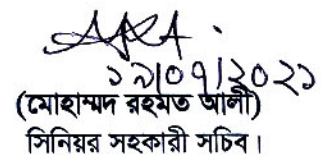 ১৯/০৭/২০২১
(মোহাম্মদ রহমত আলী)
সিনিয়র সহকারী সচিব।